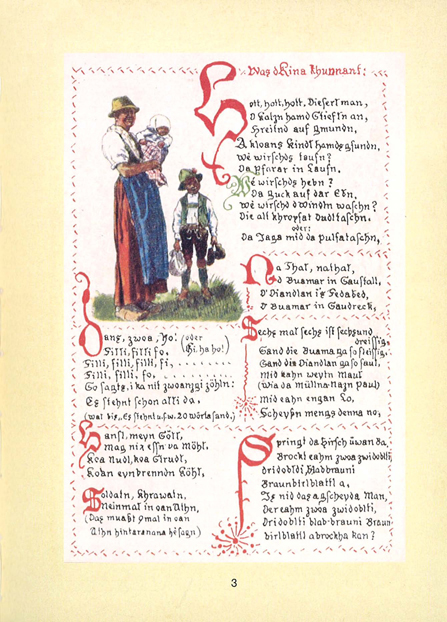 Was d Kina khunnant:
Hott, hott, hott, Diesert man,
d Katzn hamd Stiefin an,
Hreitnd auf Gmundn,
A kloans Kindl hamds gfundn,
Wë wirschds taufn?
Da Pfarar in Laufn.
Wë wirschds hebn?
Da Guck auf dar Ebn,
wë wirschd d Windln waschn?
Die alt khropfat Dudltaschn.
oder:
da Jaga mid da Pulfataschn,
Na That, nathat,
d Buamar in
d' Diandlan
d Buamar in
Oans, zwoa, Ho! (oder
Filli, filli fo, Hi, ha ho!)
Filli, filli, filli, fi, . . . . . . . .
Filli, filli, fo, . . . . . . . .
So sagts, i ka nit zwoanzgi zöhln:
Es stehnt schon alli da,
(wal bis „Es stehnt u.s.w. 20 Wörla sand.)
Sechs mal sechs ist sechsund
dreissig,
Sand die Buama ga so fleissig,
Sand die Diandlan ga so faul,
Mid eahn weytn Maul
(Wia da Müllna-Nazn Paul)
Mid eahn engan Lo,
Scheyßn mengs denna no,
Hansl, meyn Gött,
Mag nix eßn va Möhl,
Koa Nudl, koa Strudl,
Koan eynbrenndn Köhl,
Soldatn, Khrawatn,
Neinmal in oan Athn,
(Das muaßt 9 mal in oan
Athn hintaranana hësagn)
Springt da Hirsch üwan Ba,
Brockt eahm zwoa zwidoblti
dridobldi, Blabbrauni
Braunbirlblattl a,
Is nid das a gscheyda Man,
Der eahm zwoa zwidoblti,
Dridoblti blab-brauni Braun-
birlblattl abrocka kan?
3